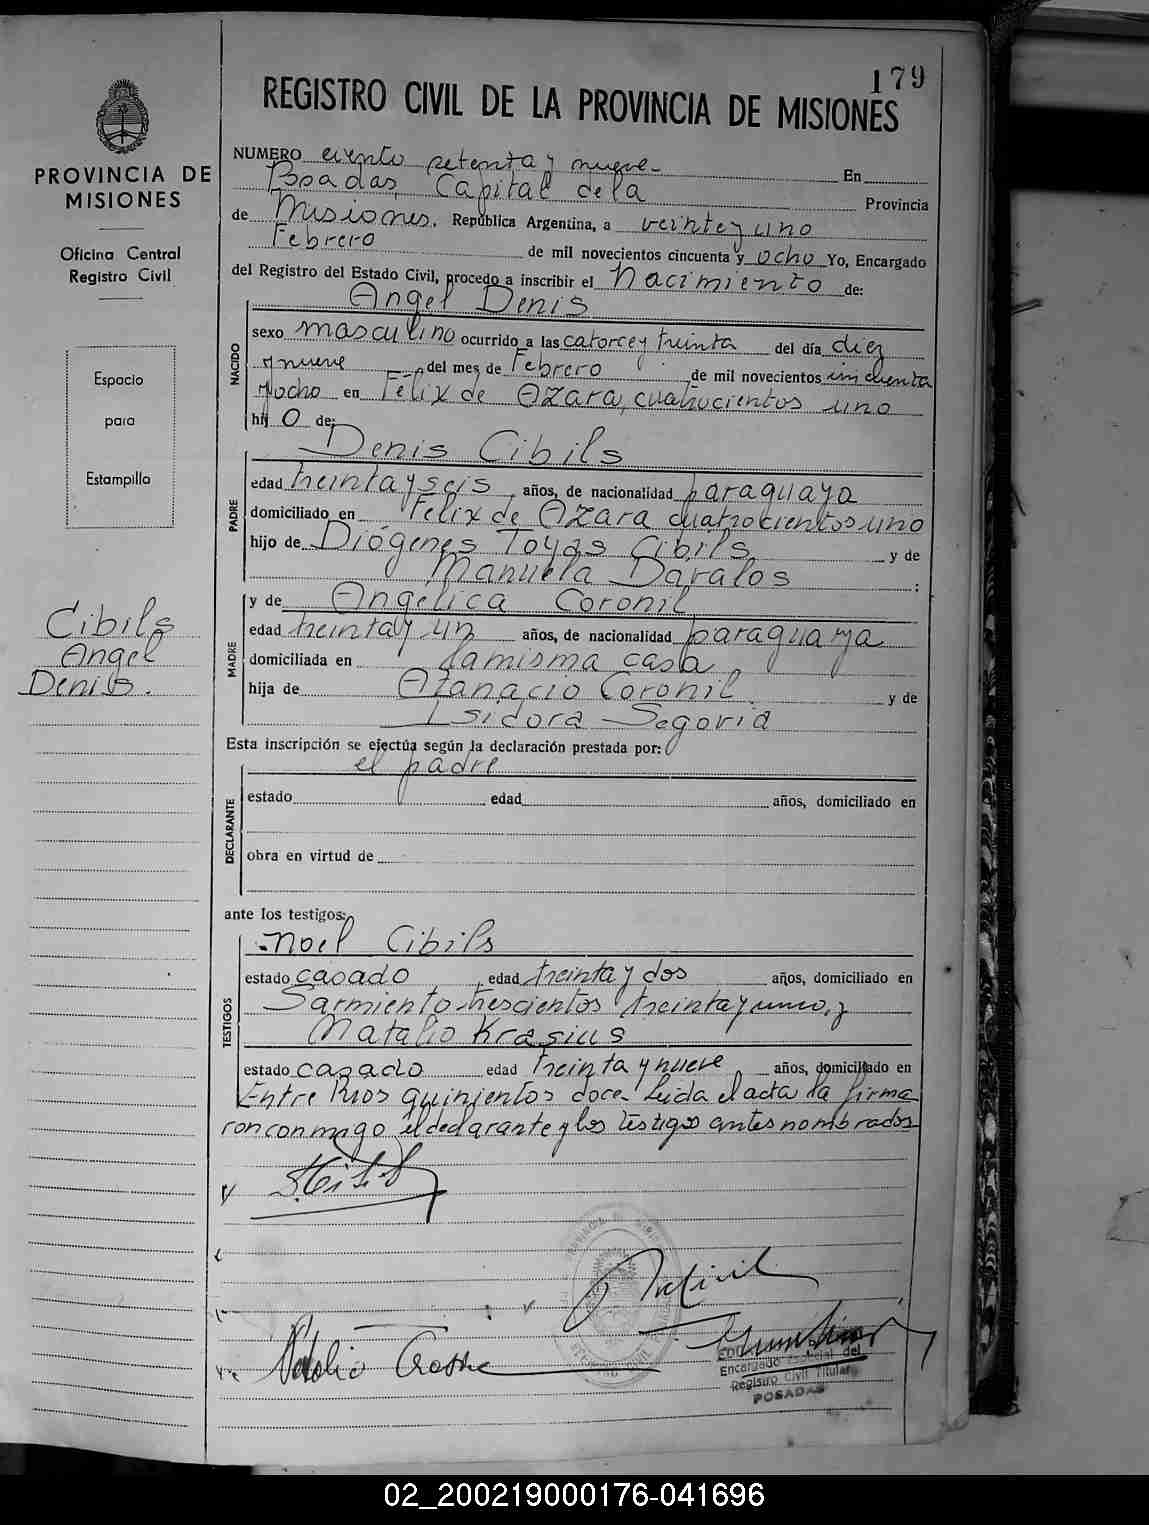 179
REGISTRO CIVIL DE LA PROVINCIA DE MISIONES
PROVINCIA DE
MISIONES
Oficina Central
Registro Civil
Espacio
para
Estampilla
Cibils
Angel
Denis.
NUMERO ciento setenta y nueve- En
Posadas, Capital de la Provincia
de Misiones, República Argentina, a veinte y uno
Febrero de mil novecientos cincuenta y ocho Yo, Encargado
del Registro del Estado Civil, procedo a inscribir el Nacimiento de:
Angel Denis
NACIDO
sexo masculino ocurrido a las catorce y treinta del día diez
y nueve del mes de Febrero de mil novecientos cincuenta
y ocho en Félix de Azara, cuatrocientos uno
hij o de:
Denis Cibils
PADRE
edad treinta y seis años, de nacionalidad paraguaya
domiciliado en Félix de Azara cuatrocientos uno
hijo de Diógenes Cibils y de
Manuela Davalos :
y de Angélica Coronil
MADRE
edad treinta y un años, de nacionalidad paraguaya
domiciliada en la misma casa
hija de Atanacio Coronil y de
Isidora Segovia
Esta inscripción se efectúa según la declaración prestada por:
el padre
DECLARANTE
estado edad años, domiciliado en
obra en virtud de
ante los testigos:
Noel Cibils
TESTIGOS
estado casado edad treinta y dos años, domiciliado en
Sarmiento trescientos treinta y uno, y
Natalio Krasius
estado casado edad treinta y nueve años, domiciliado en
Entre Rios quinientos doce. Leida el acta la firma
ron conmigo el declarante y los testigos antes nombrados
Natalio
Encargado Especial del
Registro Civil Titular
POSADAS
02_200219000176-041696